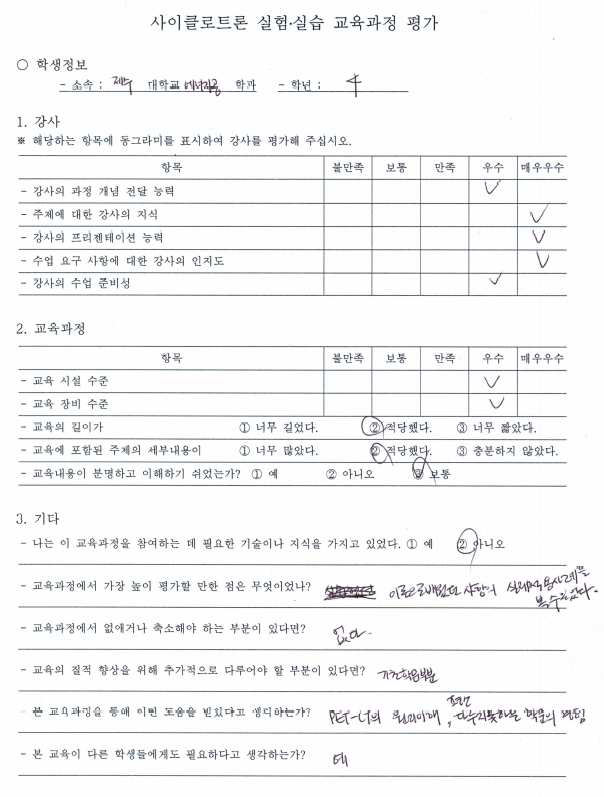 사이클로트론 실험·실습 교육과정 평가
○ 학생정보
- 소속 : 제주 대학교 에너지공 학과 - 학년 : 4
1. 강사
※ 해당하는 항목에 동그라미를 표시하여 강사를 평가해 주십시오.
항목 불만족 보통 만족 우수 매우우수
- 강사의 과정 개념 전달 능력 ✓
- 주제에 대한 강사의 지식 ✓
- 강사의 프리젠테이션 능력 ✓
- 수업 요구 사항에 대한 강사의 인지도 ✓
- 강사의 수업 준비성 ✓
2. 교육과정
항목 불만족 보통 만족 우수 매우우수
- 교육 시설 수준 ✓
- 교육 장비 수준 ✓
- 교육의 길이가 ① 너무 길었다. ② 적당했다. ③ 너무 짧았다.
- 교육에 포함된 주제의 세부내용이 ① 너무 많았다. ② 적당했다. ③ 충분하지 않았다.
- 교육내용이 분명하고 이해하기 쉬었는가? ① 예 ② 아니오 ③ 보통
3. 기타
- 나는 이 교육과정을 참여하는 데 필요한 기술이나 지식을 가지고 있었다. ① 예 ② 아니오
- 교육과정에서 가장 높이 평가할 만한 점은 무엇이었나? 이론으로 배웠던 사항의
- 교육과정에서 없애거나 축소해야 하는 부분이 있다면? 없다.
- 교육의 질적 향상을 위해 추가적으로 다루어야 할 부분이 있다면? 기초학습부분
- 본 교육과정을 통해 어떤 도움을 받았다고 생각하는가? PET-CT의 원리이해, 평소 다루지못하는 학문의
- 본 교육이 다른 학생들에게도 필요하다고 생각하는가? 네